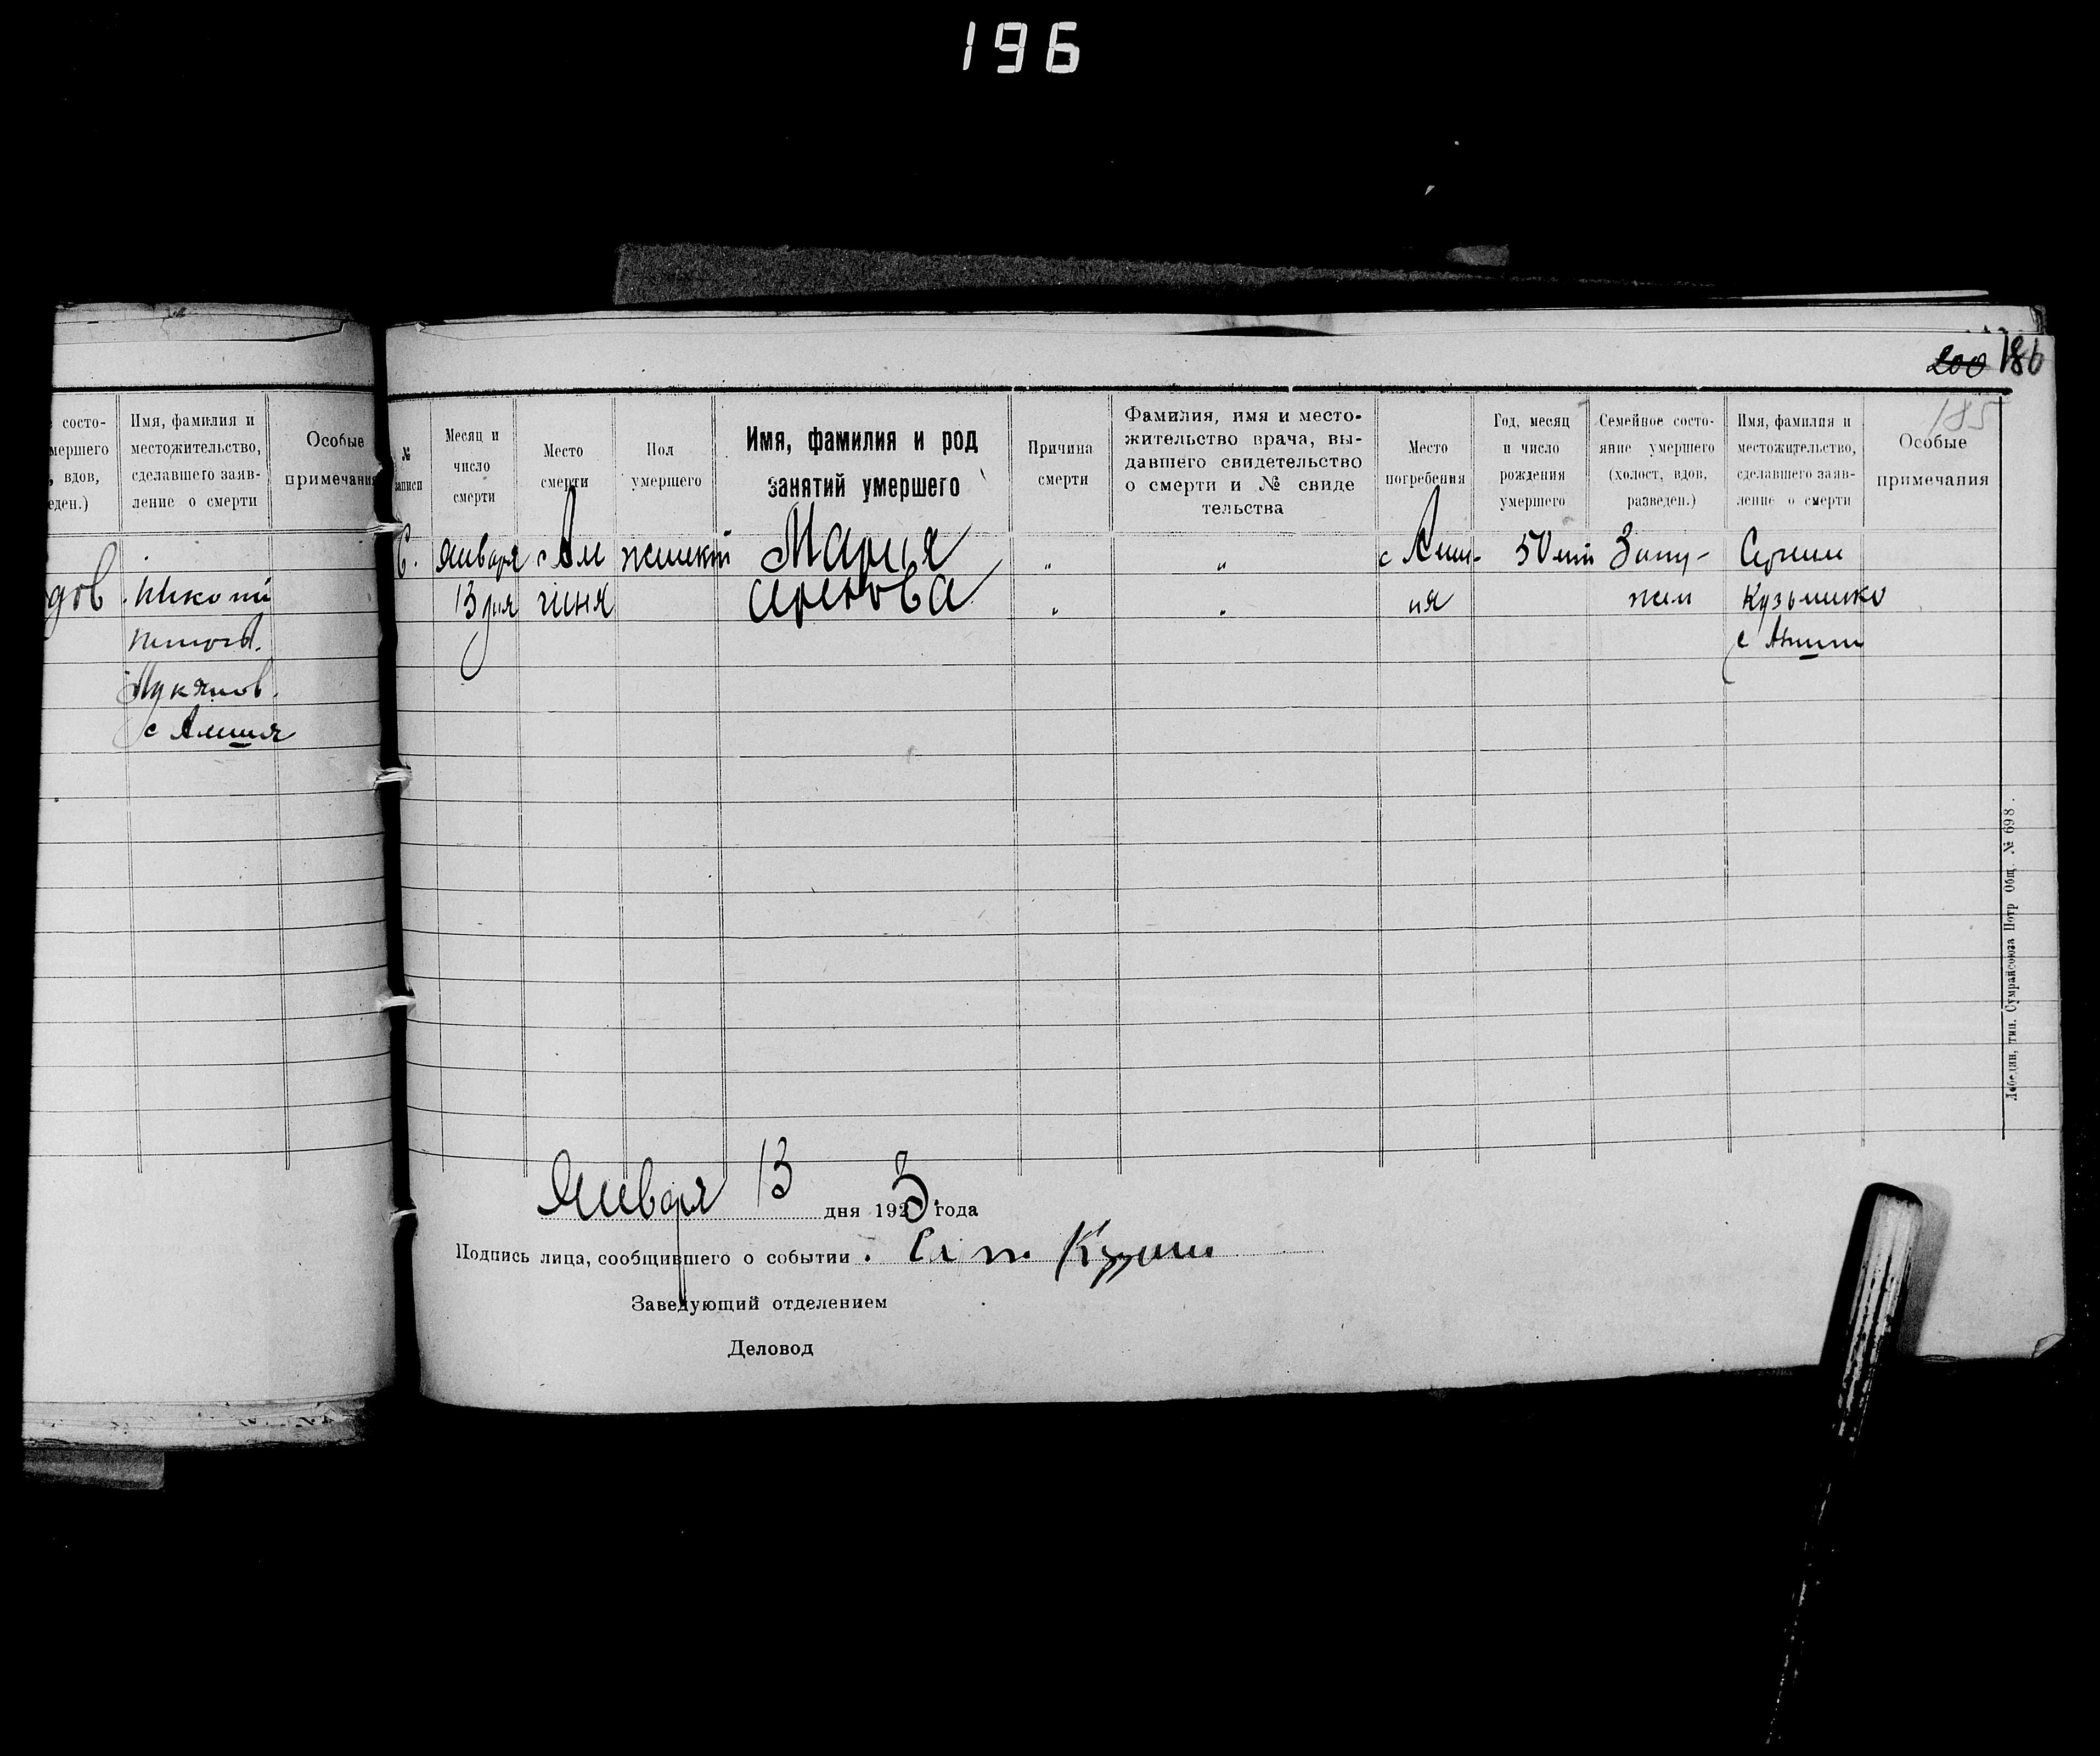 196
200 186
185
состо-
мершего
, вдов,
еден.)
Имя, фамилия и
местожительство,
сделавшего заяв-
ление о смерти
Особые
примечания
дов
с Алешня
№
записи
Месяц и
число
смерти
Место
смерти
Пол
умершего
Имя, фамилия и род
занятий умершего
Причина
смерти
Фамилия, имя и место-
жительство врача, вы-
давшего свидетельство
о смерти и № свиде
тельства
Место
погребения
Год, месяц
и число
рождения
умершего
Семейное состо-
яние умершего
(холост, вдов,
разведен.)
Имя, фамилия и
местожительство,
сделавшего заяв-
ление о смерти
Особые
примечания
6. Января с Але женский Мария " " с Алеш- 50 лет Заму-
13 дня шня " " ня жем
Января 13 дня 1923 года
Подпись лица, сообщившего о событии
Заведующий отделением
Деловод
Лебедин, тип. Сумрайсоюза Потр Общ. № 698.